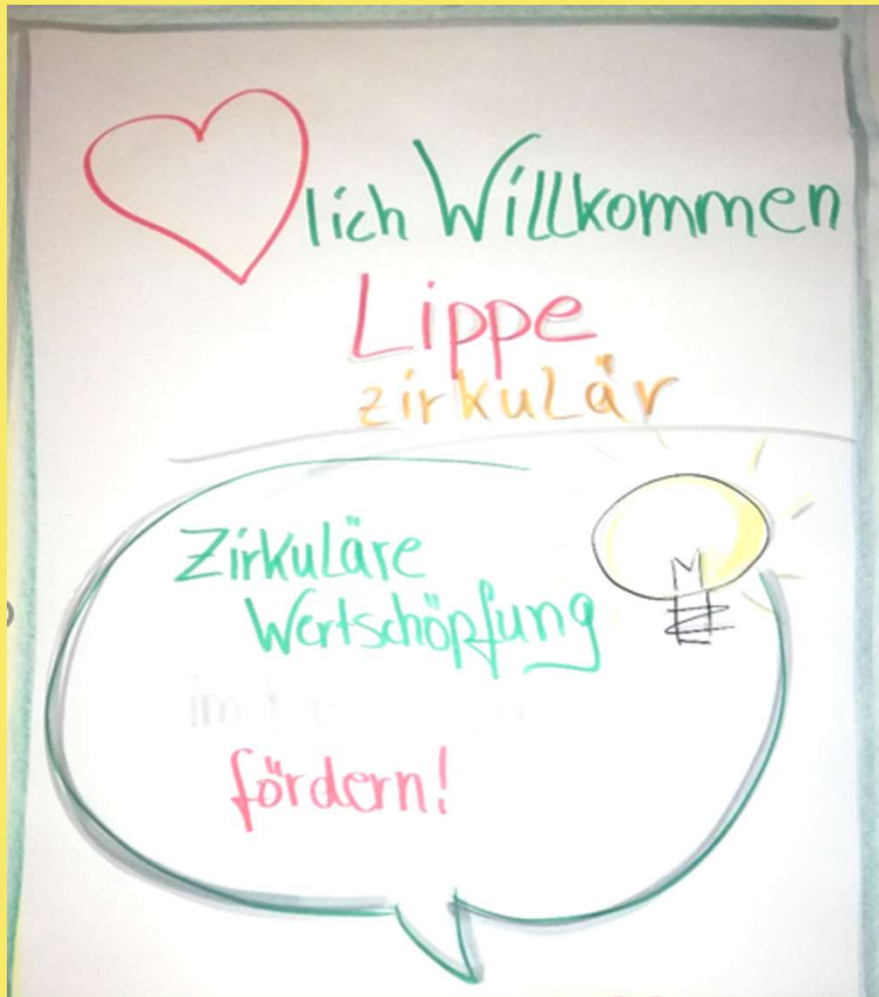 lich Willkommen
Lippe
zirkulär
Zirkuläre
Wertschöpfung
im
fördern!